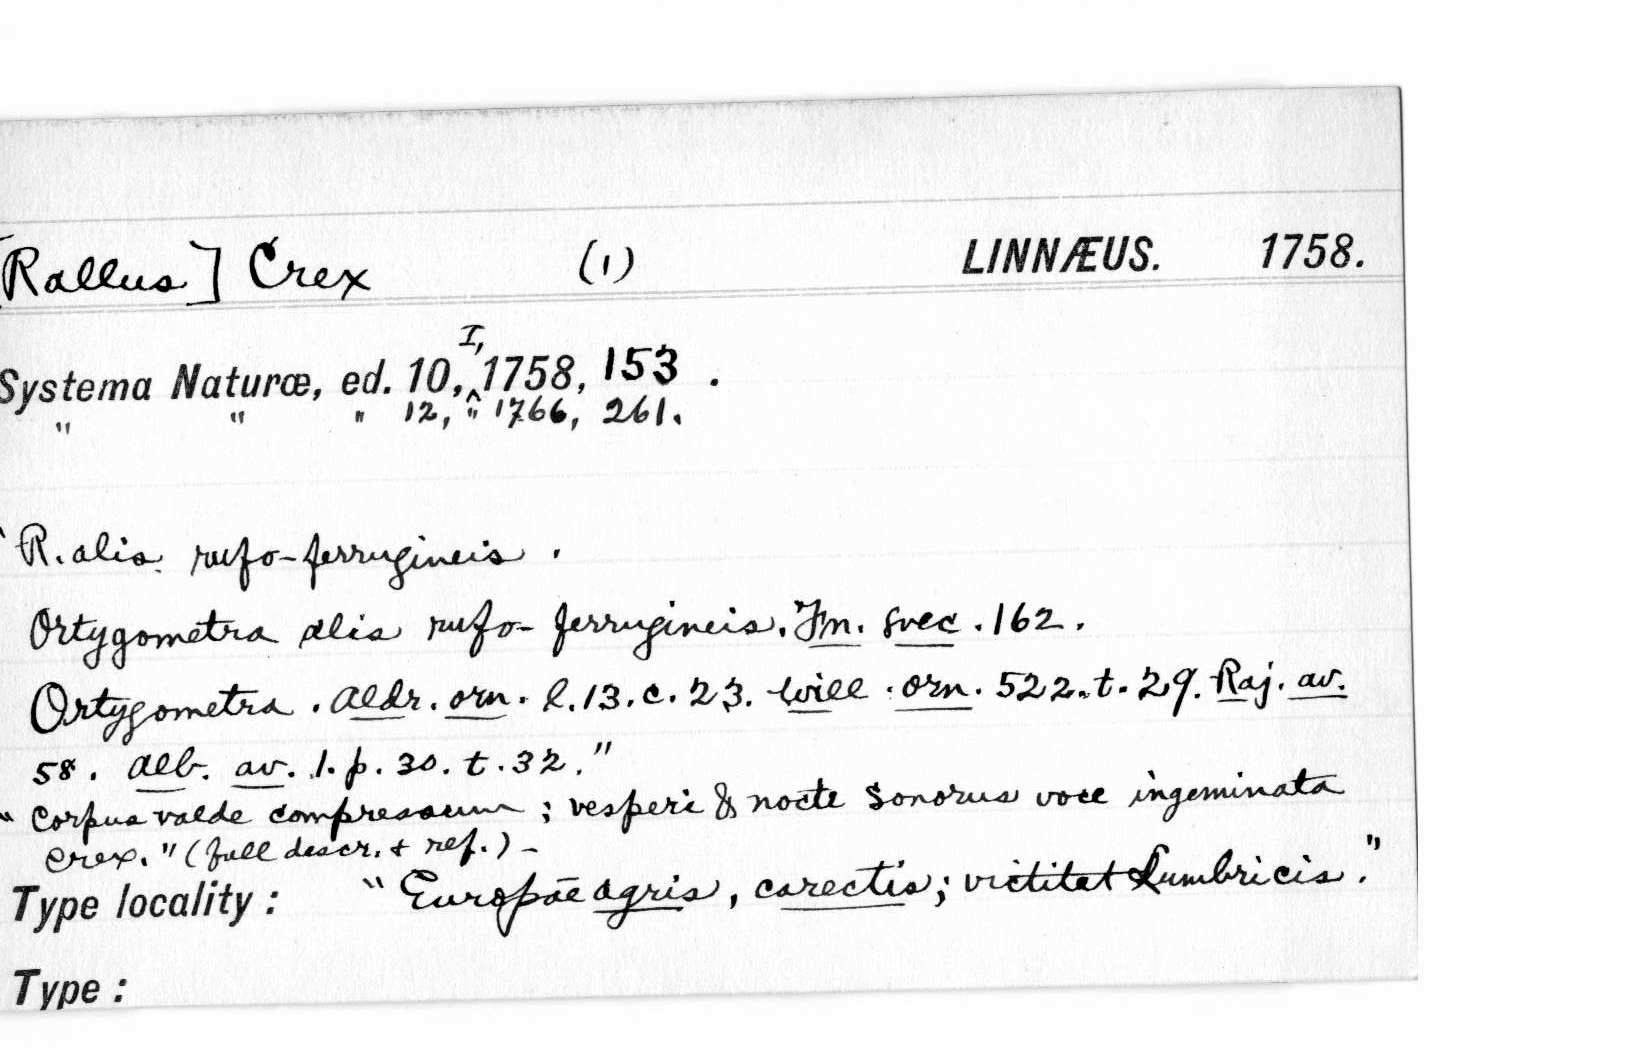 [Rallus] Crex (1) LINNÆUS. 1758.
Systema Naturæ, ed. 10, I, 1758, 153.
" " " 12, " 1766, 261.
"R. alis rufo-ferrugineis.
Ortygometra alis rufo-ferrugineis. Fn. svec. 162.
Ortygometra. Aldr. orn. l. 13. c. 23. Will. orn. 522. t. 29. Raj. av.
58. Alb. av. 1. p. 30. t. 32."
"Corpus valde compressum; vesperi & nocte sonorus voce ingeminata
crex." (full descr. & ref.) -
Type locality: "Europae agris, carectis; victitat Lumbricis."
Type: